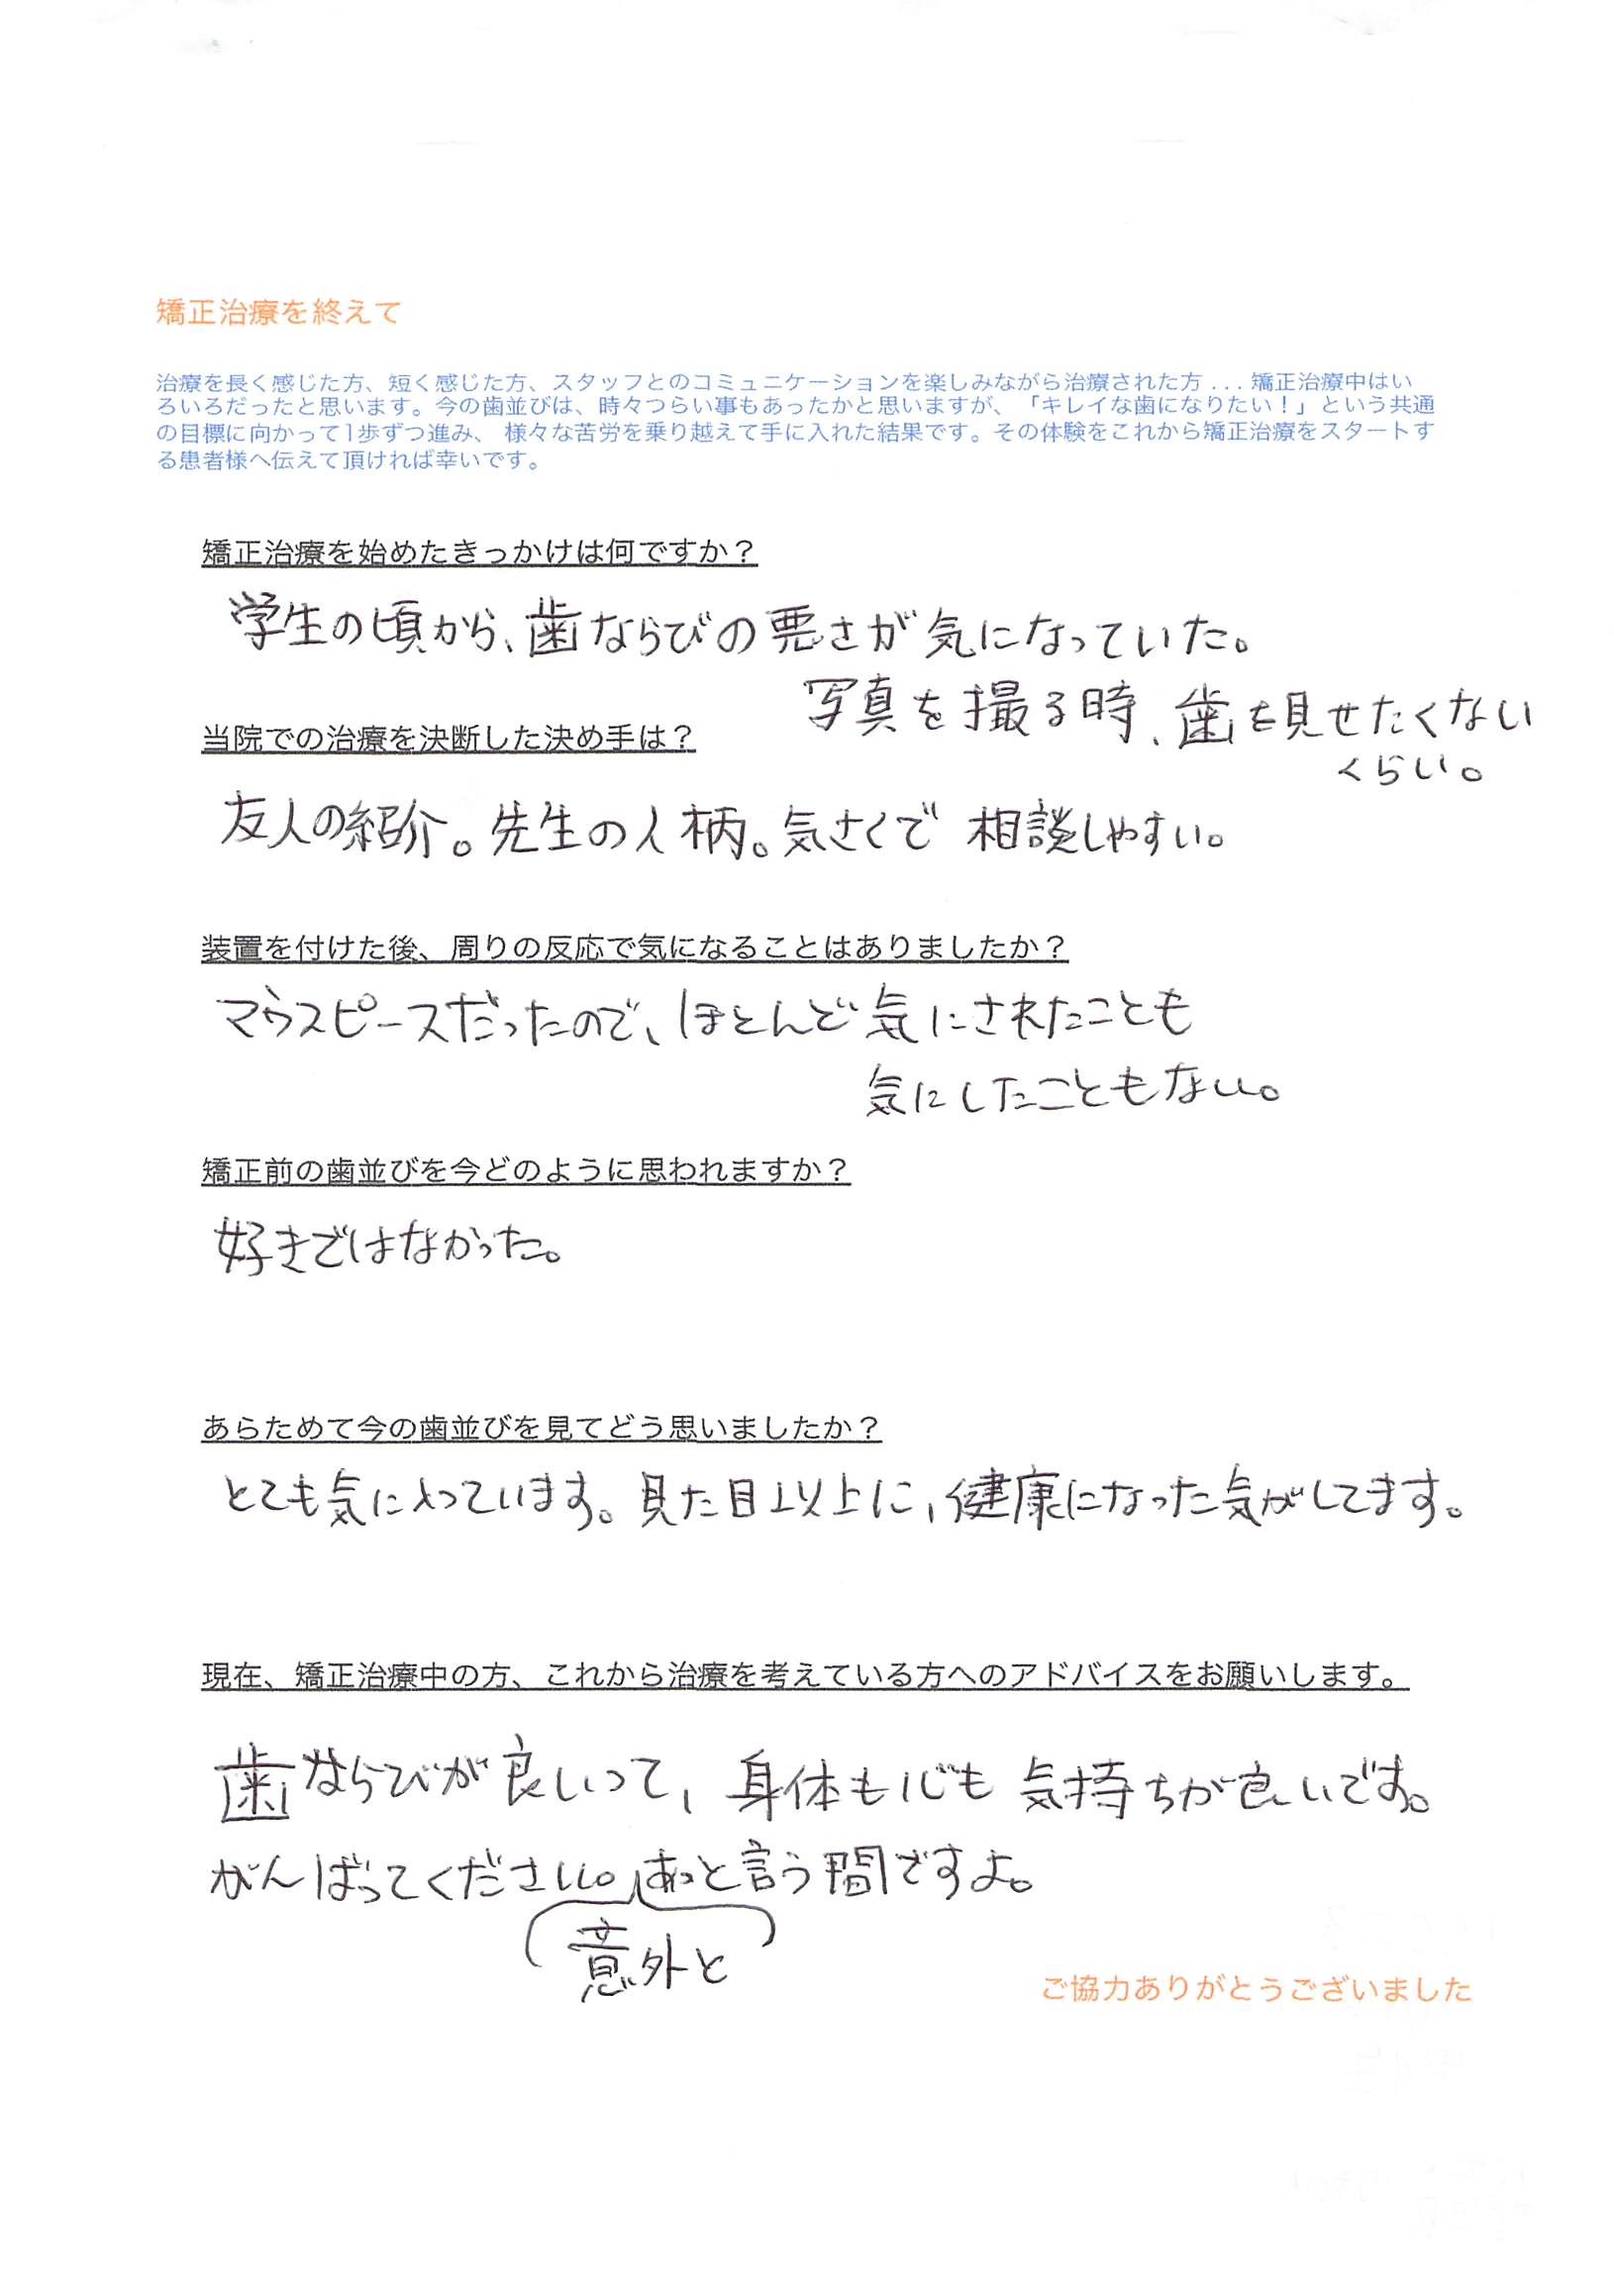 矯正治療を終えて
治療を長く感じた方、短く感じた方、スタッフとのコミュニケーションを楽しみながら治療された方...矯正治療中はい
ろいろだったと思います。今の歯並びは、時々つらい事もあったかと思いますが、「キレイな歯になりたい！」という共通
の目標に向かって1歩ずつ進み、 様々な苦労を乗り越えて手に入れた結果です。その体験をこれから矯正治療をスタートす
る患者様へ伝えて頂ければ幸いです。
矯正治療を始めたきっかけは何ですか？
学生の頃から、歯ならびの悪さが気になっていた。
写真を撮る時、歯を見せたくない
くらい。
当院での治療を決断した決め手は？
友人の紹介。先生の人柄。気さくで相談しやすい。
装置を付けた後、周りの反応で気になることはありましたか？
マウスピースだったので、ほとんど気にされたことも
気にしたこともない。
矯正前の歯並びを今どのように思われますか？
好きではなかった。
あらためて今の歯並びを見てどう思いましたか？
とても気に入っています。見た目以上に、健康になった気がしてます。
現在、矯正治療中の方、これから治療を考えている方へのアドバイスをお願いします。
歯ならびが良いって、身体も心も気持ちが良いです。
がんばってください。あっと言う間ですよ。
意外と
ご協力ありがとうございました